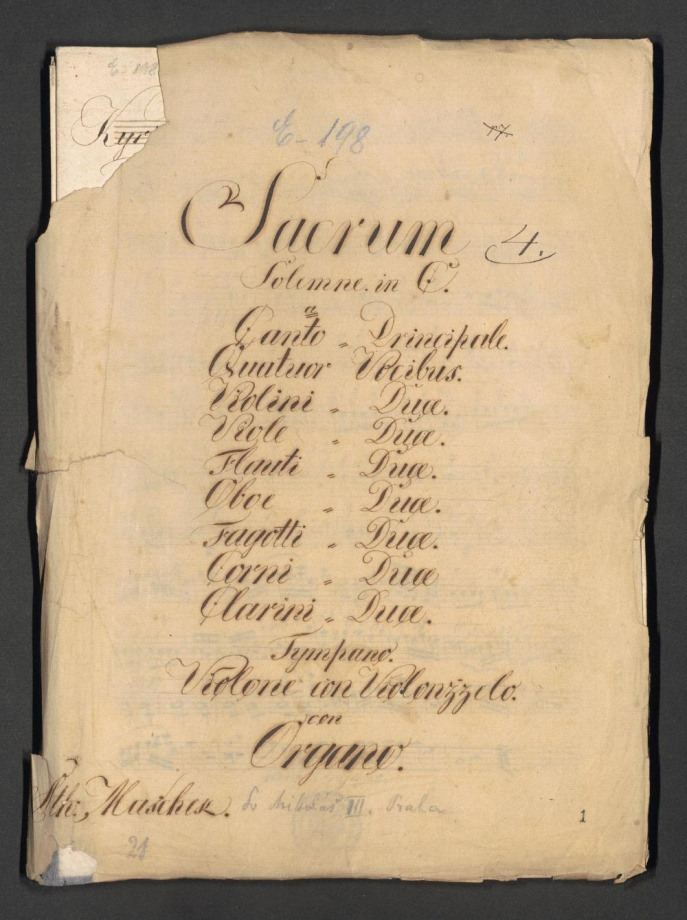 E-198
Kyr
E-198
17.
Sacrum 4.
Solemne. in C.
a
Canto „ Principale.
Quatuor Vocibus.
Violini „ Duæ.
Viole „ Duæ.
Flauti „ Duæ.
Oboe „ Duæ.
Fagotti „ Duæ.
Corni „ Duæ
Clarini „ Duæ.
Tympano.
Violone con Violonzzelo.
con
Organo.
Maschek. Sv Mikuláš III. Praha
1
21